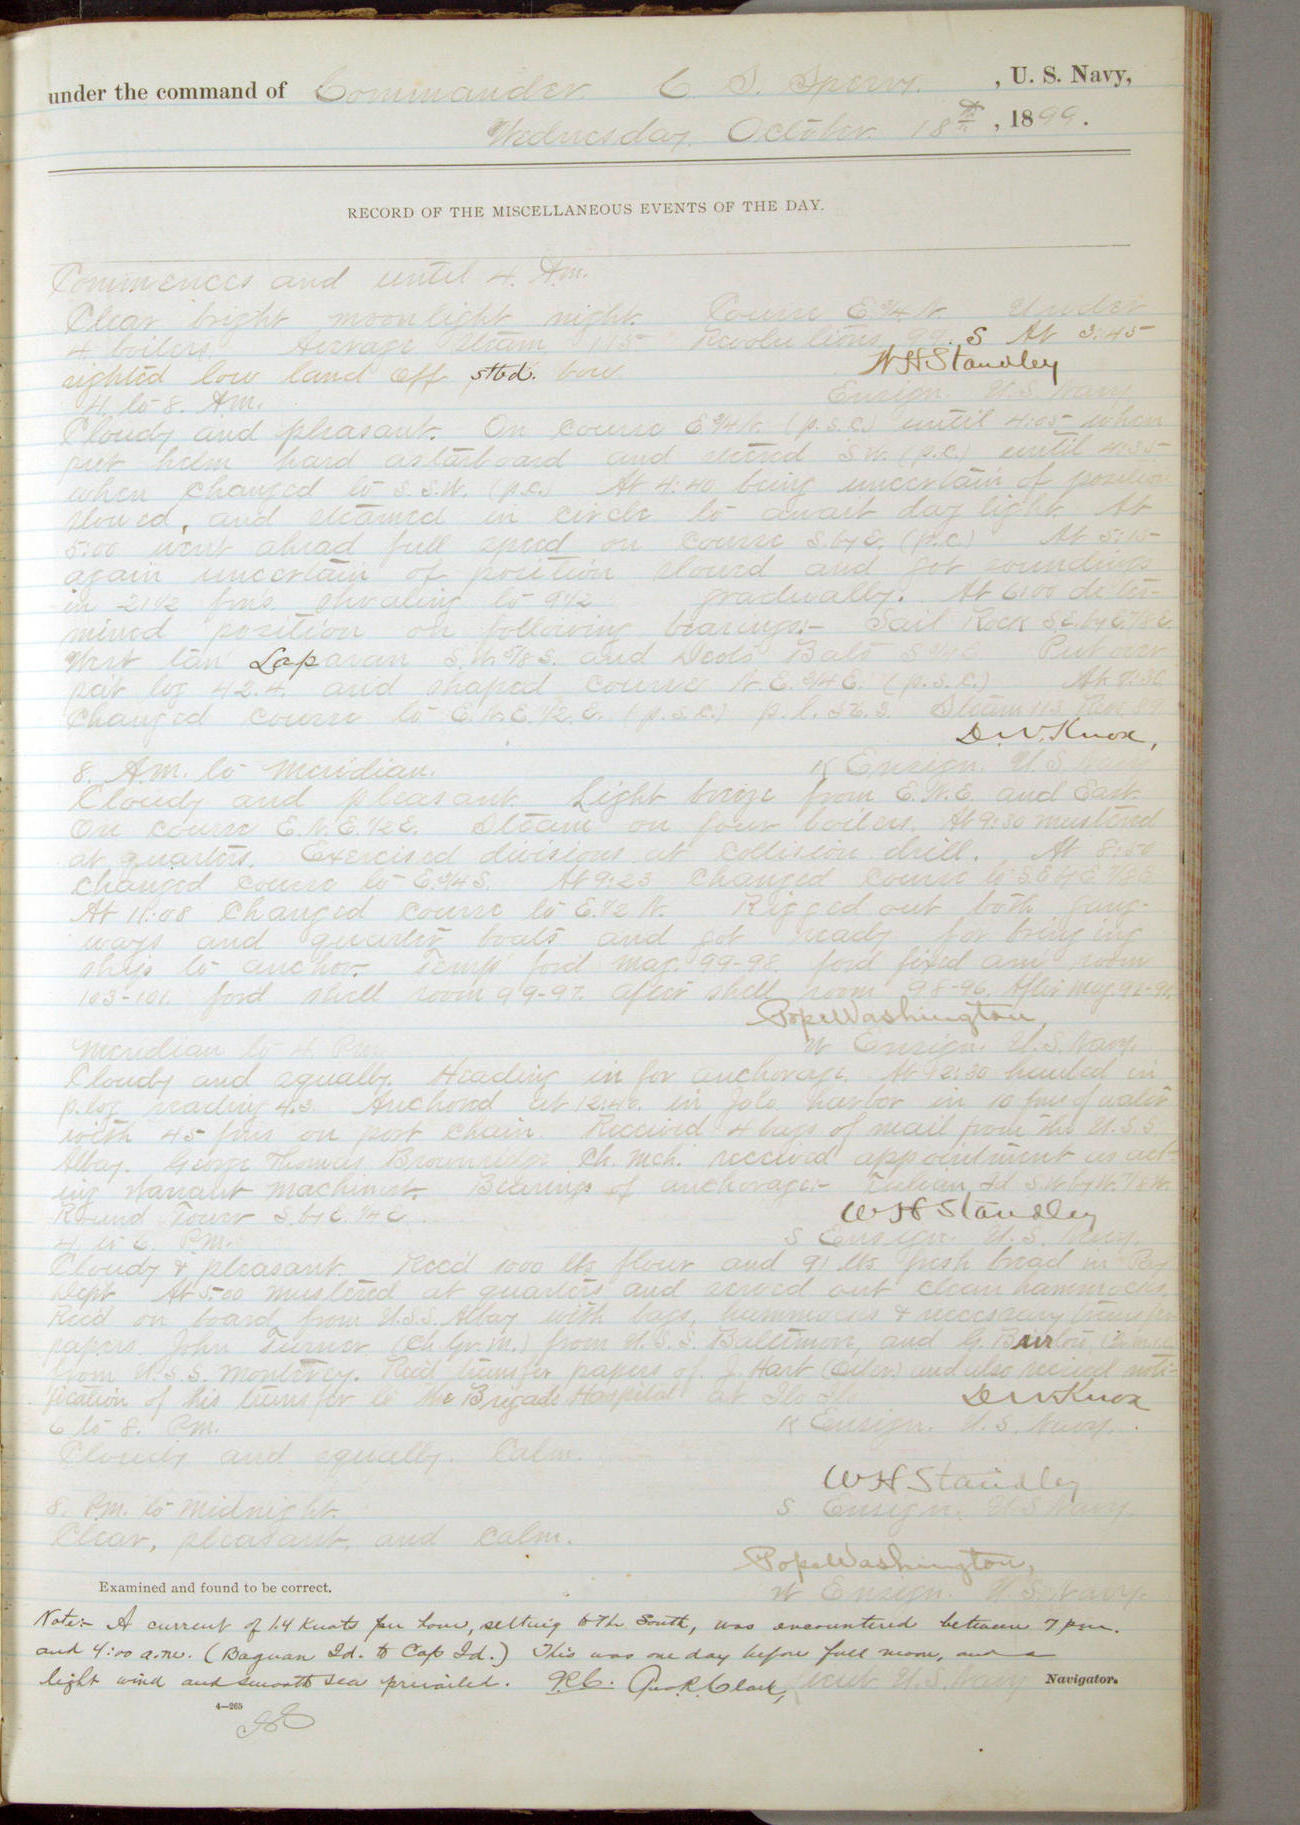 under the command of Commander C. S. Sperry, U. S. Navy,
Wednesday, October 18th, 1899.
RECORD OF THE MISCELLANEOUS EVENTS OF THE DAY.
Commences and until 4. Am.
Clear bright moonlight night. Course E.3/4.N. Under
4 boilers. Average steam 115 Revolutions 99. S At 3:45
sighted low land off stbd. bow
W H Standley
4. to 8. Am. Ensign. U.S. Navy
Cloudy and pleasant. On course E.3/4N. (p.s.c.) until 4:05 when
put helm hard astarboard and steered S.W. (p.c.) until 4:35
when changed to S.S.W. (p.c.) At 4:40 being uncertain of position
slowed, and steamed in circle to await day light. At
5:00 went ahead full speed on course S.by E. (p.c.) At 5:15
again uncertain of position slowed and got soundings
in 21 1/2 fms. shoaling to 9 1/2 gradually. At 6:00 deter-
mined position on following bearings:- Sail Rock S.E.by E.7/8E.
West tan Laparan S.W.5/8 S. and Deols Bato Put over
pat log 42.4. and shaped course N.E.3/4E. (p.s.c.) At 7:30
changed course to E.N.E.1/2.E. (p.s.c.) p.l. 52.3. Steam 113 Rev. 89.
D.W. Knox,
8. Am. to Meridian. K Ensign. U.S. Navy
Cloudy and pleasant. Light breeze from E.N.E. and East.
On course E.N.E.1/2E. Steam on four boilers. At 9:30 mustered
at quarters. Exercised divisions at collision drill. At 8:50
changed course to E.3/4S. At 9:23 changed course to S.E.by E.7/8E.
At 11:08 changed course to E.1/2 N. Rigged out both gang-
ways and quarter boats and got ready for bringing
ship to anchor. Temps for'd mag. 99-98. for'd fixed am. room
103-101. for'd shell room 99-97. after shell room 98-96. After mag. 92-91.
Pope Washington,
Meridian to 4. Pm. W Ensign. U.S. Navy.
Cloudy and squally. Heading in for anchorage. At 12:30 hauled in
p.log reading 4.3. Anchored at 12:40. in Jolo harbor in 10 fms of water
with 45 fms on port chain. Received 4 bags of mail from the U.S.S.
Albay. George Thomas Brownridge Ch. Mch. received appointment as act-
ing Warrant Machinist. Bearings of anchorage:- Tulian Id S.W.by W.7/8W.
Round Tower S.by E.1/4 E.
W H Standley
4. to 6. P.M. S Ensign. U.S. Navy.
Cloudy & pleasant. Rec'd 1000 lbs flour and 91 lbs fresh bread in Pay
Dept. At 5:00 mustered at quarters and served out clean hammocks.
Rec'd on board from U.S.S. Albay with bags, hammocks & necessary transfer
papers John Turner (Ch. Gr. M.) from U.S.S. Baltimore, and G. Burton
from U.S.S. Monterey. Rec'd transfer papers of J. Hart (Oiler) and also received noti-
fication of his transfer to the Brigade Hospital at Ilo Ilo
D W Knox
6 to 8. P.M. K Ensign. U.S. Navy.
Cloudy and squally. Calm.
W H Standley
8. P.M. to Midnight. S Ensign. U.S. Navy.
Clear, pleasant, and calm.
Pope Washington,
Examined and found to be correct. W Ensign. U.S. Navy.
Note:- A current of 1.4 Knots per hour, setting to the South, was encountered between 7 p.m.
and 4:00 a.m. (Baguan Id. to Cap Id.) This was one day before full moon, and a
light wind and smooth sea prevailed. G.R.C. Geo. R. Clark, Lieut. U.S. Navy Navigator.
4—265